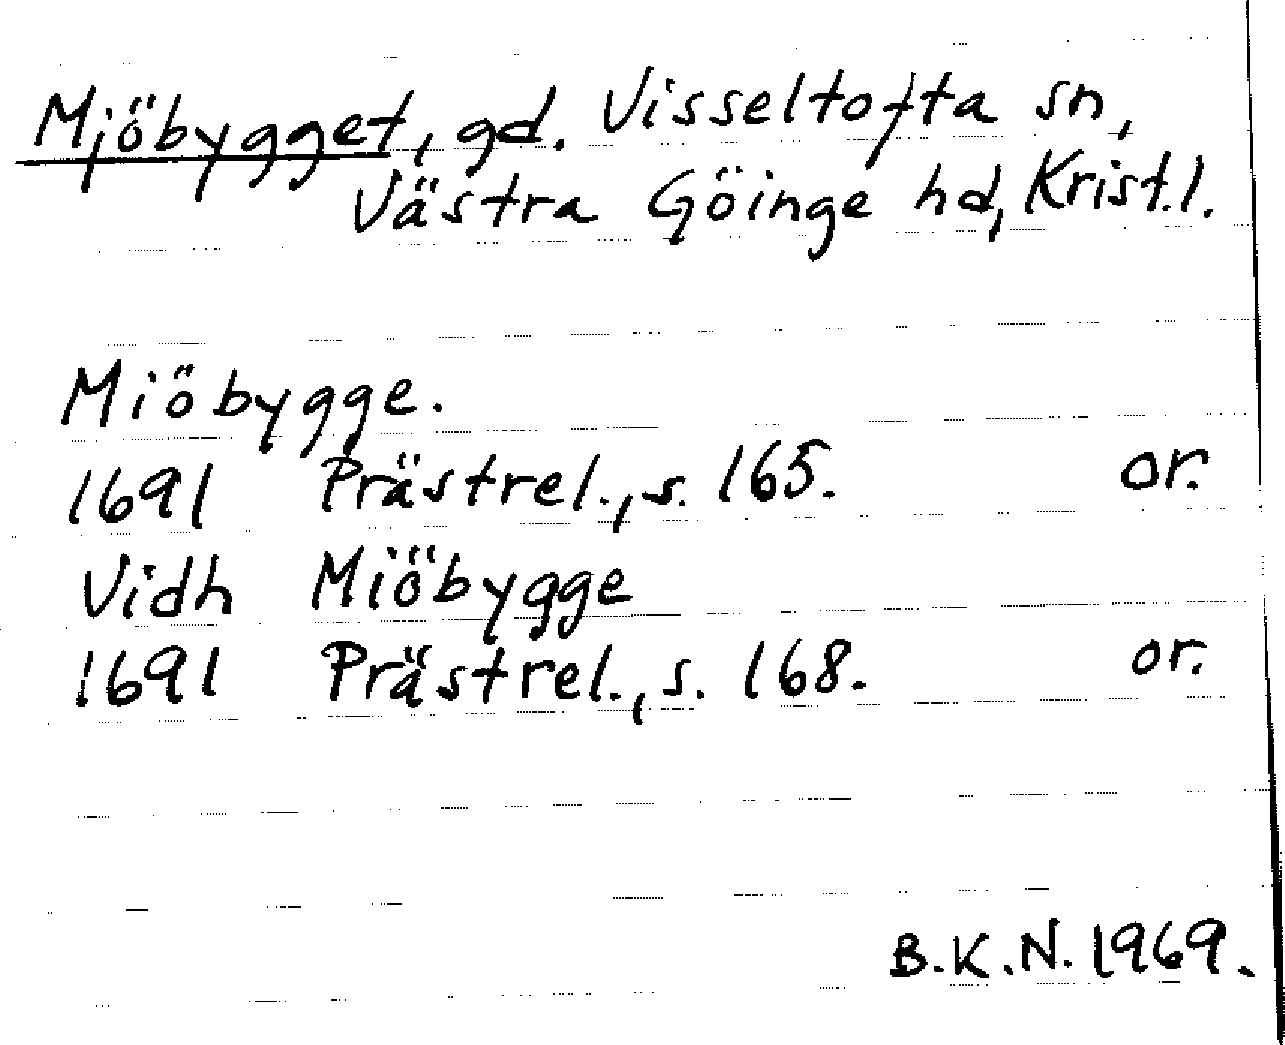 Mjöbygget, gd. Visseltofta sn,
Västra Göinge hd, Krist.l.
Miöbygge.
1691 Prästrel., s. 165. or.
Vidh Miöbygge
1691 Prästrel., s. 168. or.
B.K.N. 1969.